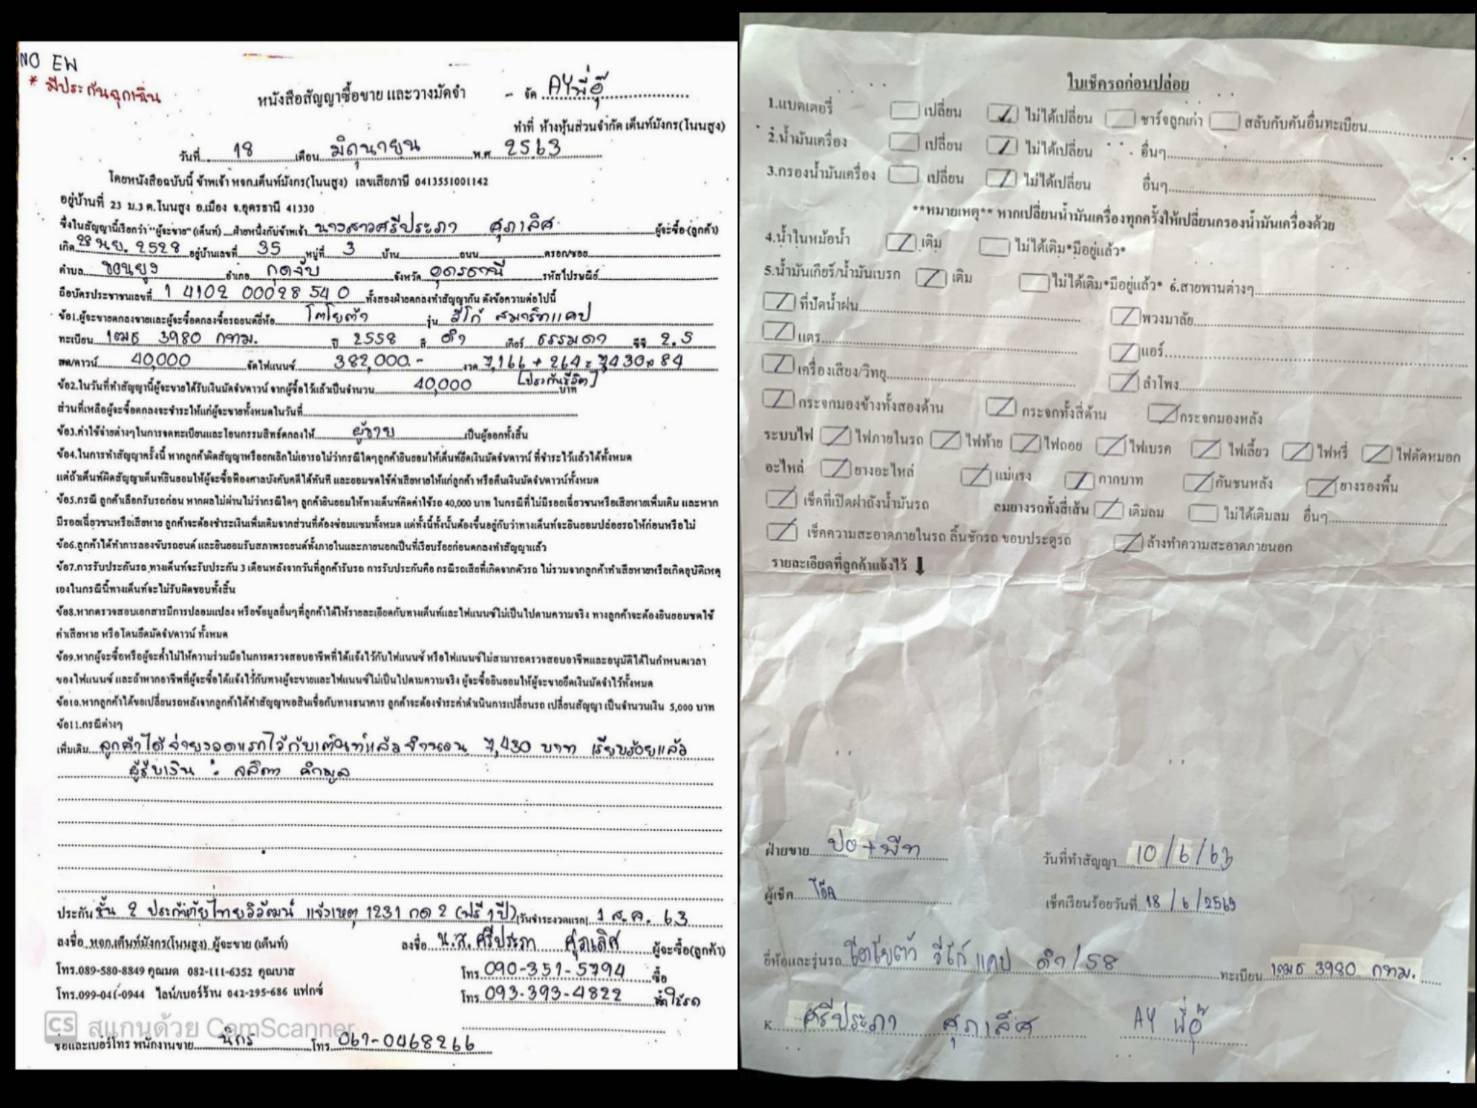 NO EW
* มีประกันฉุกเฉิน
หนังสือสัญญาซื้อขาย และวางมัดจำ
- จัด AYพี่อุ๊
ทำที่ ห้างหุ้นส่วนจำกัด เต็นท์มังกร(โนนสูง)
วันที่ 18 เดือน มิถุนายน พ.ศ 2563
โดยหนังสือฉบับนี้ ข้าพเจ้า หจก.เต็นท์มังกร(โนนสูง) เลขเสียภาษี 0413551001142
อยู่บ้านที่ 23 ม.3 ต.โนนสูง อ.เมือง จ.อุดรธานี 41330
ซึ่งในสัญญานี้เรียกว่า "ผู้จะขาย"(เต็นท์) ฝ่ายหนึ่งกับข้าพเจ้า นางสาวศรีประภา ศุภเลิศ ผู้จะซื้อ(ลูกค้า)
เกิด 28 พ.ย. 2528 อยู่บ้านเลขที่ 35 หมู่ที่ 3 บ้าน ถนน ตรอก/ซอย
ตำบล ขอนยูง อำเภอ กุดจับ จังหวัด อุดรธานี รหัสไปรษณีย์
ถือบัตรประชาชนเลขที่ 1 4102 00028 54 0 ทั้งสองฝ่ายตกลงทำสัญญากัน ดังข้อความต่อไปนี้
ข้อ1.ผู้จะขายตกลงขายและผู้จะซื้อตกลงซื้อรถยนต์ยี่ห้อ โตโยต้า รุ่น วีโก้ สมาร์ทแคป
ทะเบียน 1ฒธ 3980 กทม. ปี 2558 สี ดำ เกียร์ ธรรมดา ซีซี 2.5
สด/ดาวน์ 40,000 จัดไฟแนนซ์ 382,000.- งวด 7,166 + 264 = 7,430 x 84
[ประกันชีวิต]
ข้อ2.ในวันที่ทำสัญญานี้ผู้จะขายได้รับเงินมัดจำ/ดาวน์ จากผู้ซื้อไว้แล้วเป็นจำนวน 40,000 บาท
ส่วนที่เหลือผู้จะซื้อตกลงจะชำระให้แก่ผู้จะขายทั้งหมดในวันที่
ข้อ3.ค่าใช้จ่ายต่างๆในการจดทะเบียนและโอนกรรมสิทธิ์ตกลงให้ ผู้ขาย เป็นผู้ออกทั้งสิ้น
ข้อ4.ในการทำสัญญาครั้งนี้ หากลูกค้าผิดสัญญาหรือยกเลิกไม่เอารถไม่ว่ากรณีใดๆลูกค้ายินยอมให้เต็นท์ยึดเงินมัดจำ/ดาวน์ ที่ชำระไว้แล้วได้ทั้งหมด
แต่ถ้าเต็นท์ผิดสัญญาเต็นท์ยินยอมให้ผู้จะซื้อฟ้องศาลบังคับคดีได้ทันที และยอมชดใช้ค่าเสียหายให้แก่ลูกค้า หรือคืนเงินมัดจำ/ดาวน์ทั้งหมด
ข้อ5.กรณี ลูกค้าเลือกรับรถก่อน หากผลไม่ผ่านไม่ว่ากรณีใดๆ ลูกค้ายินยอมให้ทางเต็นท์คิดค่าใช้รถ 40,000 บาท ในกรณีที่ไม่มีรอยเฉี่ยวชนหรือเสียหายเพิ่มเติม และหาก
มีรอยเฉี่ยวชนหรือเสียหาย ลูกค้าจะต้องชำระเงินเพิ่มเติมจากส่วนที่ต้องซ่อมแซมทั้งหมด แต่ทั้งนี้ทั้งนั้นต้องขึ้นอยู่กับว่าทางเต็นท์จะยินยอมปล่อยรถให้ก่อนหรือไม่
ข้อ6.ลูกค้าได้ทำการลองขับรถยนต์ และยินยอมรับสภาพรถยนต์ทั้งภายในและภายนอกเป็นที่เรียบร้อยก่อนตกลงทำสัญญาแล้ว
ข้อ7.การรับประกันรถ ทางเต็นท์จะรับประกัน 3 เดือนหลังจากวันที่ลูกค้ารับรถ การรับประกันคือ กรณีรถเสียที่เกิดจากตัวรถ ไม่รวมจากลูกค้าทำเสียหายหรือเกิดอุบัติเหตุ
เองในกรณีนี้ทางเต็นท์จะไม่รับผิดชอบทั้งสิ้น
ข้อ8.หากตรวจสอบเอกสารมีการปลอมแปลง หรือข้อมูลอื่นๆที่ลูกค้าได้ให้รายละเอียดกับทางเต็นท์และไฟแนนซ์ไม่เป็นไปตามความจริง ทางลูกค้าจะต้องยินยอมชดใช้
ค่าเสียหาย หรือโดนยึดมัดจำ/ดาวน์ ทั้งหมด
ข้อ9.หากผู้จะซื้อหรือผู้จะค้ำไม่ให้ความร่วมมือในการตรวจสอบอาชีพที่ได้แจ้งไว้กับไฟแนนซ์ หรือไฟแนนซ์ไม่สามารถตรวจสอบอาชีพและอนุมัติได้ในกำหนดเวลา
ของไฟแนนซ์ และถ้าหากอาชีพที่ผู้จะซื้อได้แจ้งไว้กับทางผู้จะขายและไฟแนนซ์ไม่เป็นไปตามความจริง ผู้จะซื้อยินยอมให้ผู้จะขายยึดเงินมัดจำไว้ทั้งหมด
ข้อ10.หากลูกค้าได้ขอเปลี่ยนรถหลังจากลูกค้าได้ทำสัญญาขอสินเชื่อกับทางธนาคาร ลูกค้าจะต้องชำระค่าดำเนินการเปลี่ยนรถ เปลี่ยนสัญญา เป็นจำนวนเงิน 5,000 บาท
ข้อ11.กรณีต่างๆ
เพิ่มเติม ลูกค้าได้จ่ายงวดแรกไว้กับเต๊นท์แล้วจำนวน 7,430 บาท เรียบร้อยแล้ว
ผู้รับเงิน : ลลิตา คำพูล
ประกัน ชั้น 2 ประกันภัยไทยวิวัฒน์ แจ้งเหตุ 1231 กด 2 (ฟรี 1 ปี) (วันชำระงวดแรก) 1 ส.ค. 63
ลงชื่อ หจก.เต็นท์มังกร(โนนสูง) ผู้จะขาย (เต็นท์) ลงชื่อ น.ส. ศรีประภา ศุภเลิศ ผู้จะซื้อ(ลูกค้า)
โทร.089-580-8849 คุณมด 082-111-6352 คุณบาส โทร. 090-351-5794 ซื้อ
โทร.099-041-0944 ไลน์/เบอร์ร้าน 042-295-686 แฟกซ์ โทร. 093-393-4822
CS สแกนด้วย CamScanner
ชื่อและเบอร์โทร พนักงานขาย นิกร โทร. 061-0468266
ใบเช็ครถก่อนปล่อย
1.แบตเตอรี่ เปลี่ยน ไม่ได้เปลี่ยน ชาร์จลูกเก่า สลับกับคันอื่นทะเบียน
2.น้ำมันเครื่อง เปลี่ยน ไม่ได้เปลี่ยน อื่นๆ
3.กรองน้ำมันเครื่อง เปลี่ยน ไม่ได้เปลี่ยน อื่นๆ
**หมายเหตุ** หากเปลี่ยนน้ำมันเครื่องทุกครั้งให้เปลี่ยนกรองน้ำมันเครื่องด้วย
4.น้ำในหม้อน้ำ เติม ไม่ได้เติม*มีอยู่แล้ว*
5.น้ำมันเกียร์/น้ำมันเบรก เติม ไม่ได้เติม*มีอยู่แล้ว* 6.สายพานต่างๆ
ที่ปัดน้ำฝน พวงมาลัย
แตร แอร์
เครื่องเสียง/วิทยุ ลำโพง
กระจกมองข้างทั้งสองด้าน กระจกทั้งสี่ด้าน กระจกมองหลัง
ระบบไฟ ไฟภายในรถ ไฟท้าย ไฟถอย ไฟเบรค ไฟเลี้ยว ไฟหรี่ ไฟตัดหมอก
อะไหล่ ยางอะไหล่ แม่แรง กากบาท กันชนหลัง ยางรองพื้น
เช็คที่เปิดฝาถังน้ำมันรถ ลมยางรถทั้งสี่เส้น เติมลม ไม่ได้เติมลม อื่นๆ
เช็คความสะอาดภายในรถ ลิ้นชักรถ ขอบประตูรถ ล้างทำความสะอาดภายนอก
รายละเอียดที่ลูกค้าแจ้งไว้
ฝ่ายขาย ปอ + พีท วันที่ทำสัญญา 10/6/63
ผู้เช็ค เช็คเรียบร้อยวันที่ 18/6/2563
ยี่ห้อและรุ่นรถ โตโยต้า วีโก้ แคป ดำ/58 ทะเบียน 1ฒธ 3980 กทม.
K ศรีประภา ศุภเลิศ AY พี่อุ๊